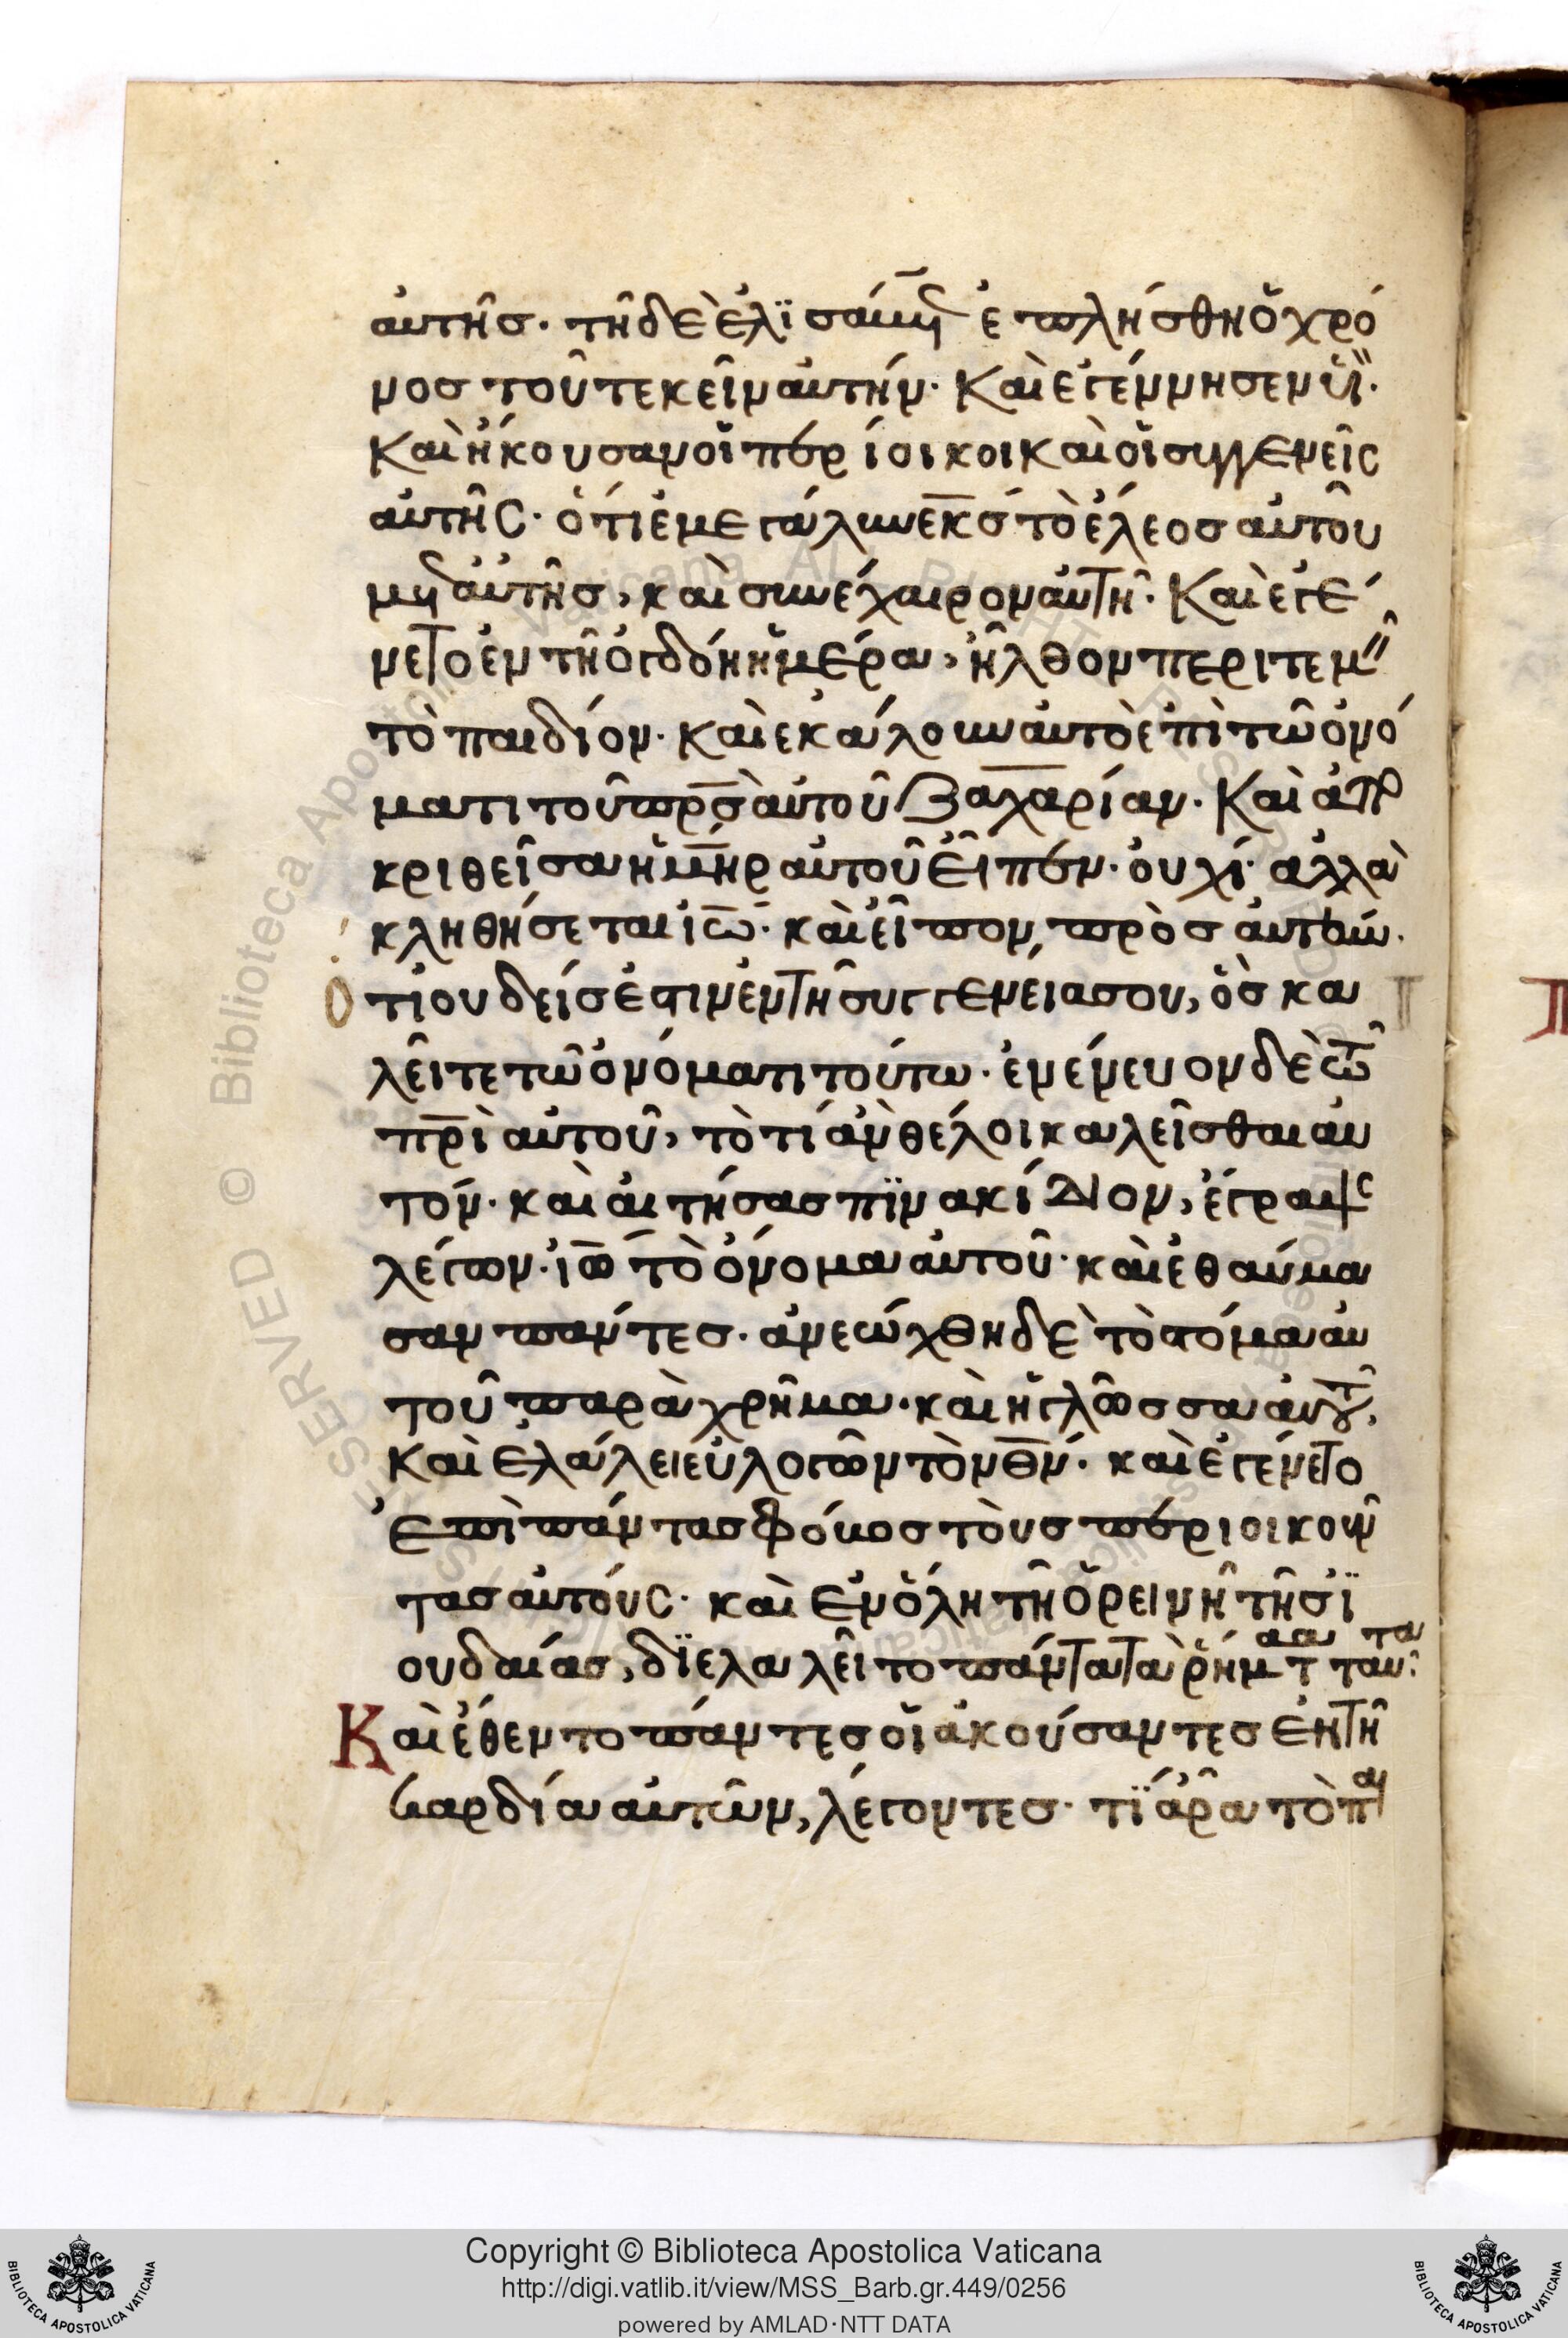 αὐτῆσ· τῆ δὲ ἐλϊσάβετ ἐπλήσθη ὁ χρό
νοσ τοῦ τεκεῖν αὐτήν· Καὶ ἐγέννησεν ϋἱ̈·
Καὶ ἤκουσαν οἱ περίοικοι καὶ οἱ συγγενεῖς
αὐτῆς· ὅτι ἐμεγάλυνε κ̅σ̅ τὸ ἔλεοσ αὐτοῦ
μετ αὐτῆσ, καὶ συνέχαιρον αὐτῆ· Καὶ ἐγέ
νετο ἐν τῆ ὀγδόη ἡμέρα, ἦλθον περιτεμ
τὸ παιδίον· καὶ ἐκάλουν αὐτὸ ἐπὶ τῶ ὀνό
ματι τοῦ π̅ρ̅σ̅ αὐτοῦ Ζαχαρίαν· Καὶ ἀπο
κριθεῖσα ἡ μ̅η̅ρ αὐτοῦ εἶπεν· οὐχί· ἀλλὰ
κληθήσεται ἰ̅ω̅· καὶ εἶπον πρὸσ αὐτήν·
Ὅτι οὐδείσ ἐστιν ἐν τῆ συγγενείασου, ὃσ κα
λεῖτε τῶ ὀνόματι τούτω· ἐνένευον δὲ τῶ
π̅ρ̅ὶ αὐτοῦ, τὸ τί ἂν θέλοι καλεῖσθαι αὐ
τόν· καὶ αἰτήσασ πϊνακίδιον, ἔγραψε
λέγων· ἰ̅ω̅ τὸ ὄνομα αὐτοῦ· καὶ ἐθαύμα
σαν πάντεσ· ἀνεώχθη δὲ τὸ στόμα αὐ
τοῦ παραχρῆμα· καὶ ἡ γλῶσσα αὐτοῦ,
Καὶ ἐλάλει εὐλογῶν τὸν θ̅ν̅· καὶ ἐγένετο
ἐπὶ πάντασ φόβοσ τοὺσ περιοικοῦν
τασ αὐτούς· καὶ ἐν ὅλη τῆ ὀρεινῆ τῆσ ἰ̈
ουδαίασ, δϊελαλεῖτο πάντα τὰ ῥήματα ταῦτα·
Καὶ ἔθεντο πάντεσ οἱ ἀκούσαντεσ ἐν τῆ
καρδία αὐτῶν, λέγοντεσ· τί ἄρα τὸ παι
Copyright © Biblioteca Apostolica Vaticana
http://digi.vatlib.it/view/MSS_Barb.gr.449/0256
powered by AMLAD·NTT DATA
BIBLIOTECA APOSTOLICA VATICANA
BIBLIOTECA APOSTOLICA VATICANA